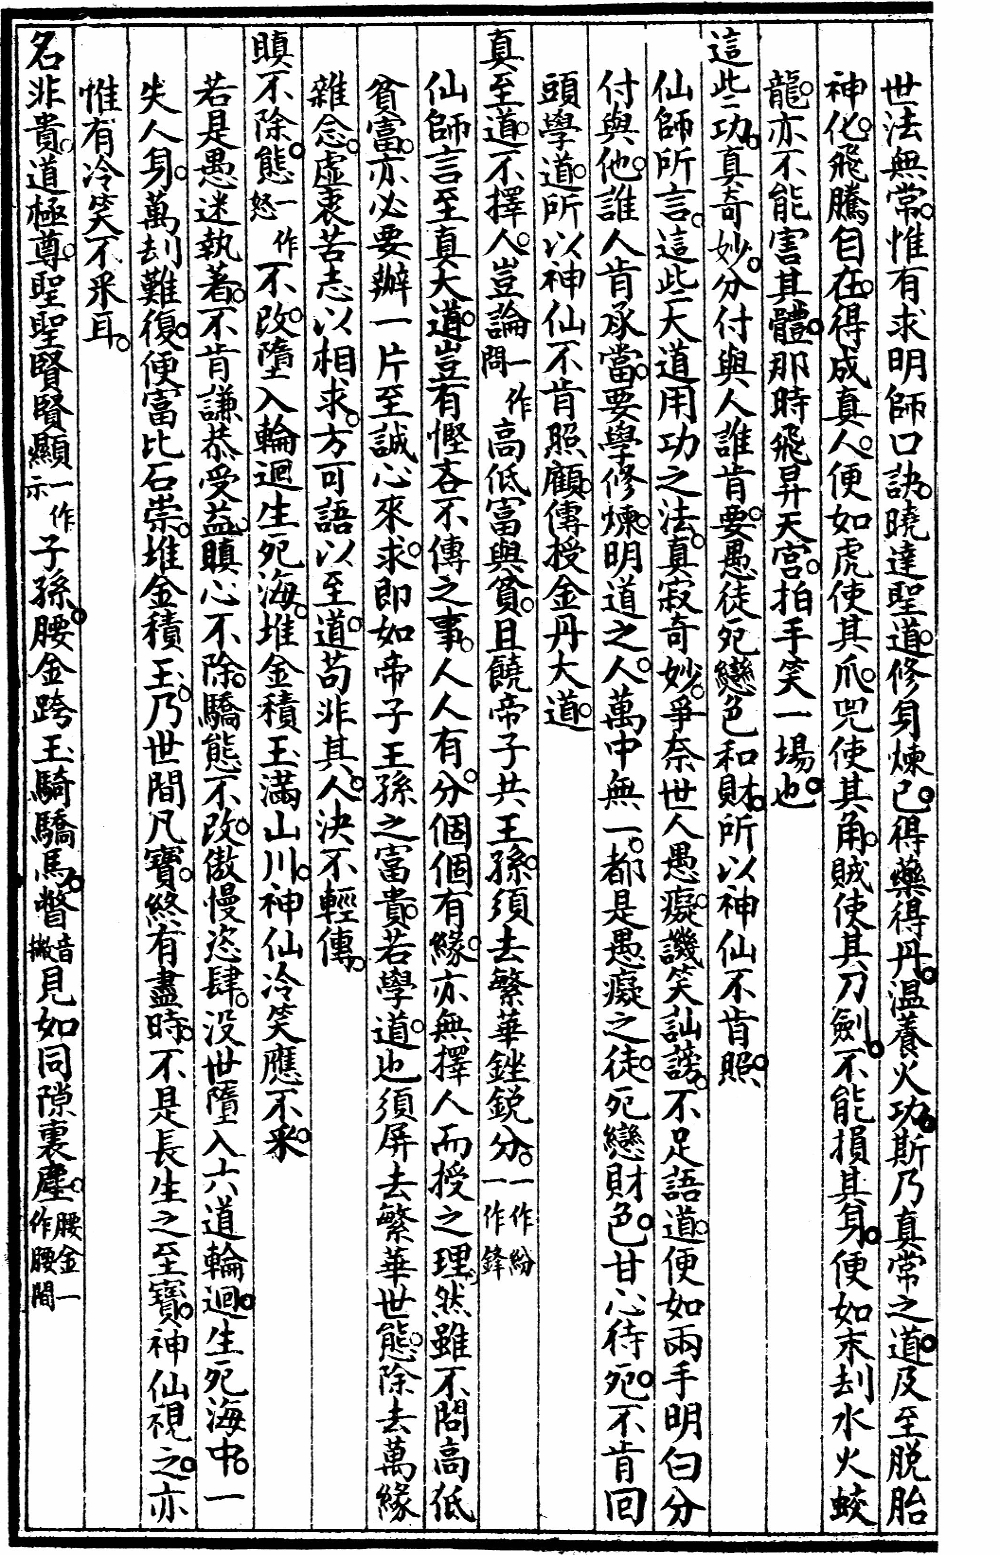 世法無常。惟有求明師口訣。曉達聖道。修身煉己。得藥得丹。溫養火功。斯乃真常之道。及至脫胎
神化。飛騰自在。得成真人。便如虎使其爪。兕使其角。賊使其刀劍。不能損其身。便如末刦水火蛟
龍。亦不能害其體。那時飛昇天宮。拍手笑一場也。
這些功。真奇妙。分付與人誰肯要。愚徒死戀色和財。所以神仙不肯照。
仙師所言。這些大道用功之法。真寂奇妙。爭奈世人愚癡。譏笑訕謗。不足語道。便如兩手明白分
付與他。誰人肯承當。要學修煉。明道之人。萬中無一。都是愚癡之徒。死戀財色。甘心待死。不肯回
頭學道。所以神仙不肯照顧。傳授金丹大道。
真至道。不擇人。豈論一作問高低富與貧。且饒帝子共王孫。須去繁華銼銳分。一作紛一作鋒
仙師言至真大道。豈有慳吝不傳之事。人人有分。個個有緣。亦無擇人而授之理。然雖不問高低
貧富。亦必要辦一片至誠心來求。即如帝子王孫之富貴。若學道也須屏去繁華世態。除去萬緣
雜念。虛衷苦志以相求。方可語以至道。苟非其人。決不輕傳。
瞋不除。態一作怒不改。墮入輪迴生死海。堆金積玉滿山川。神仙冷笑應不采。
若是愚迷執著。不肯謙恭受益。瞋心不除。驕態不改。傲慢恣肆。沒世墮入六道輪迴。生死海中。一
失人身。萬刦難復。便富比石崇。堆金積玉。乃世間凡寶。終有盡時。不是長生之至寶。神仙視之。亦
惟有冷笑不采耳。
名非貴。道極尊。聖聖賢賢顯一作示子孫。腰金跨玉騎驕馬。瞥音撇見如同隙裏塵。腰金一作腰間